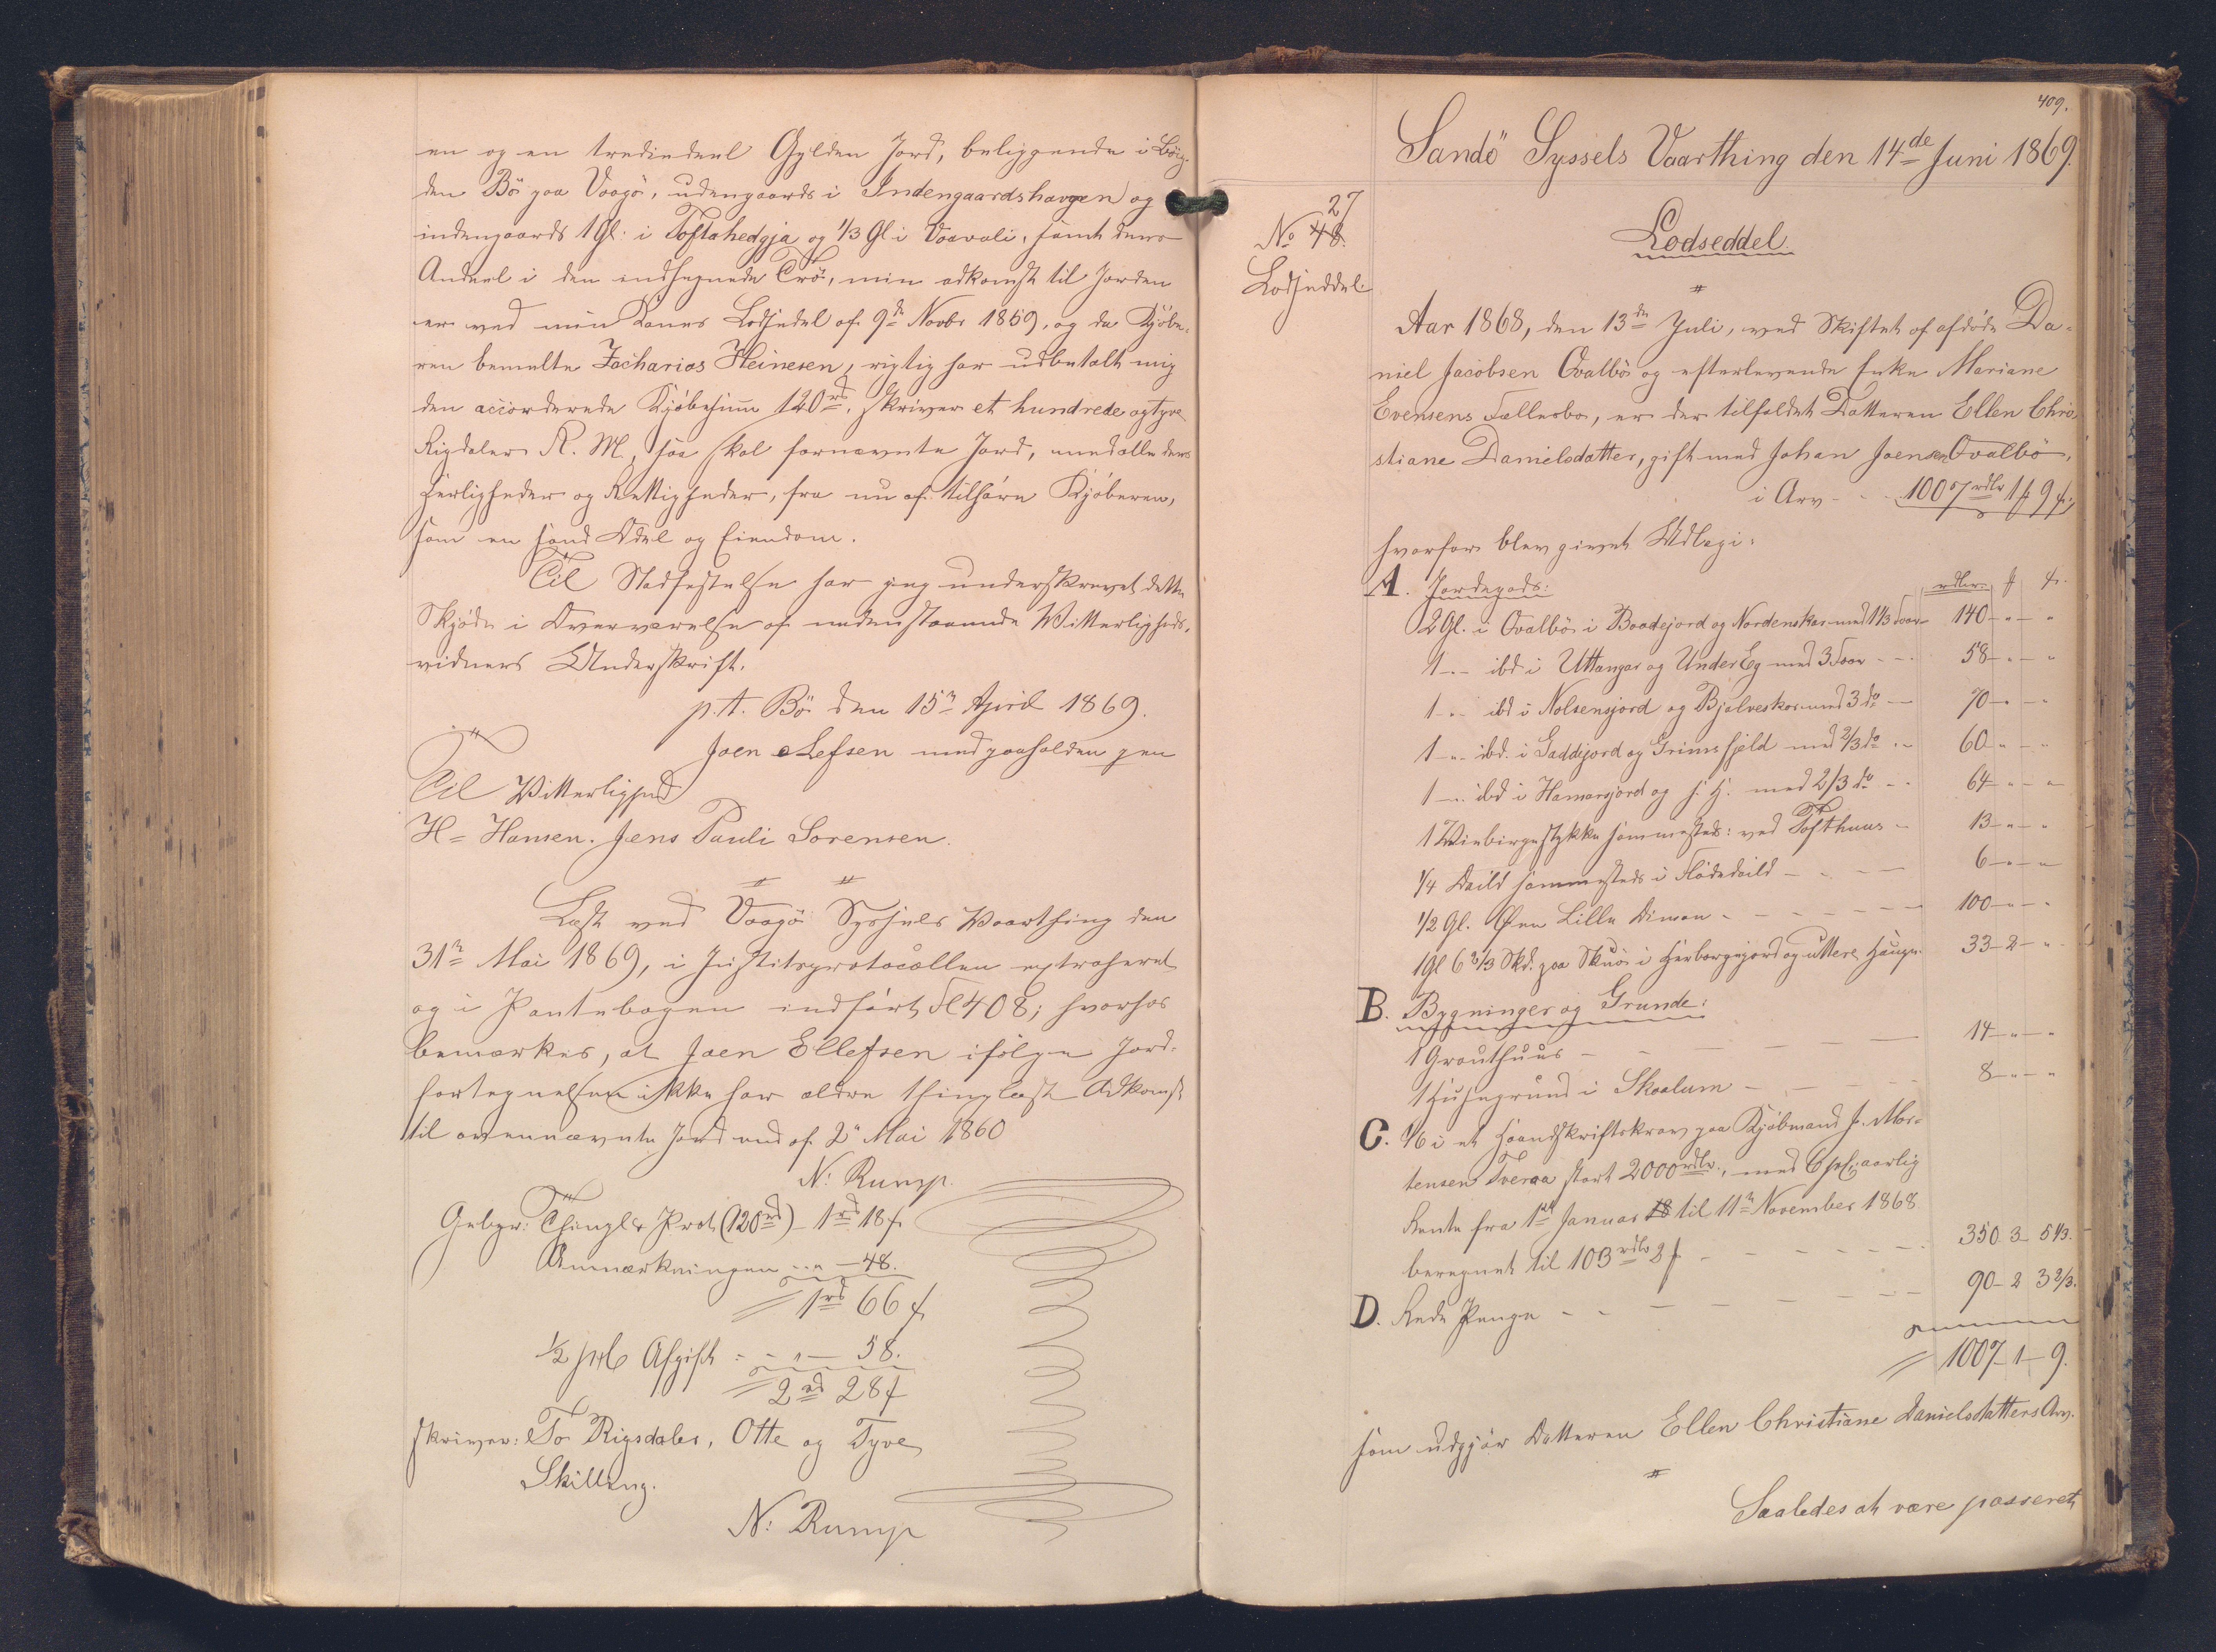 en og en trediedeel Gylden Jord, beliggende i Böig-
den Bö paa Vaagö, udengaards i Indengaardshavgen og
indengaards 1 Gl: i Toftahedgja og 1/3 Gl i Vaavali, samt dens
Andeel i den indhegnede Trö, min adkomst til Jorden
er ved min Kones Lodseddel af 9de Novbr 1859, og da Kjöbe-
ren bemeldte Zacharias Heinesen, rigtig har udbetalt mig
den accorderede Kjöbesum 120 rd, skriver et hundrede og tyve
Rigdaler R. M., saa skal fornævnte Jord, med alle dens
Herligheder og Rettigheder, fra nu af tilhöre Kjöberen,
som en sand Odel og Eiendom.
Til Stadfestelse har jeg underskrevet dette
Skjöde i Overværelse af nedenstaaende Vitterligheds-
vidners Underskrift.
p.t. Bö den 15de April 1869.
Joen Olefsen med paaholden pen
Til Vitterlighed
H= Hansen. Jens Pauli Sorensen.
Læst ved Vaagö Syssels Vaarthing den
31te Mai 1869, i Justitsprotocollen extraheret
og i Pantebogen indfört Fol 408; hvorhos
bemærkes, at Joen Ellefsen ifölge Jord-
fortegnelsen ikke har ældre thinglæst Adkomst
til ovennævnte Jord end af 2 Mai 1860
N: Rump.
Gebyr: Thingl & Prot (120 rd) - 1 rd 18 s
Anmærkningen - " - 48.
1 rd 66 s
1/2 pct Afgift - " - 58.
2 rd 28 s
skriver: To Rigsdaler, Otte og Tyve
Skilling.
N: Rump
409.
Sandö Syssels Vaarthing den 14de Juni 1869.
27
No 48.
Lodseddel
Lodseddel.
Aar 1868, den 13de Juli, ved Skiftet af afdöde Da-
niel Jacobsen Qvalbö og efterlevende Enke Mariane
Evensens Fællesbo, er der tilfaldet Datteren Ellen Chri-
stiane Danielsdatter, gift med Johan Joensen Qvalbö,
i Arv - - 1007 rdlr 1 ƒ 9 s,
hvorfor blev givet Udlæg i:
A. Jordegods: rdlr. ƒ s.
2 Gl. i Qvalbö i Baadejord og Nordenskar med 1 1/3 Faar 140 - " - "
1 - " ibd i Uttangar og Under Eg med 3 Faar - - 58 - " - "
1 - " ibd i Nolsensjord og Bjalveskor med 3 do - 70 - " - "
1 - " ibd. i Gaddejord og Grimsfjeld med 2/3 do - 60 - " - "
1 - " ibd i Hamarsjord og H. H. med 2/3 do - - 64 - " - "
1 Vinbirgestykke sammesteds: ved Tofthuus - 13 - " - "
1/4 Deild sammesteds i Flödedeild - - - 6 - " - "
1/2 Gl. Öen Lille Dimon - - - - 100 - " - "
1 Gl 6 2/3 Skd. paa Skuö i Herborgejord og uttere Haugen. 33 - 2 - "
B. Bygninger og Grunde:
1 Grouthuus - - - - 14 - " - "
1 Huusgrund i Skaalum - - - 8 - " - "
C. 1/6 i et Haandskriftskrav paa Kjöbmand J. Mor-
tensen Tveraa stort 2000 rdlr., med 6 pCt. aarlig
Rente fra 1ste Januar 18 til 11te November 1868
beregnet til 103 rdlr 2 ƒ - - - - 350 - 3 - 5 1/3.
D. Rede Penge - - - - - 90 - 2 3 2/3.
1007 - 1 - 9.
som udgjör Datteren Ellen Christiane Danielsdatters Arv.
Saaledes at være passeret,